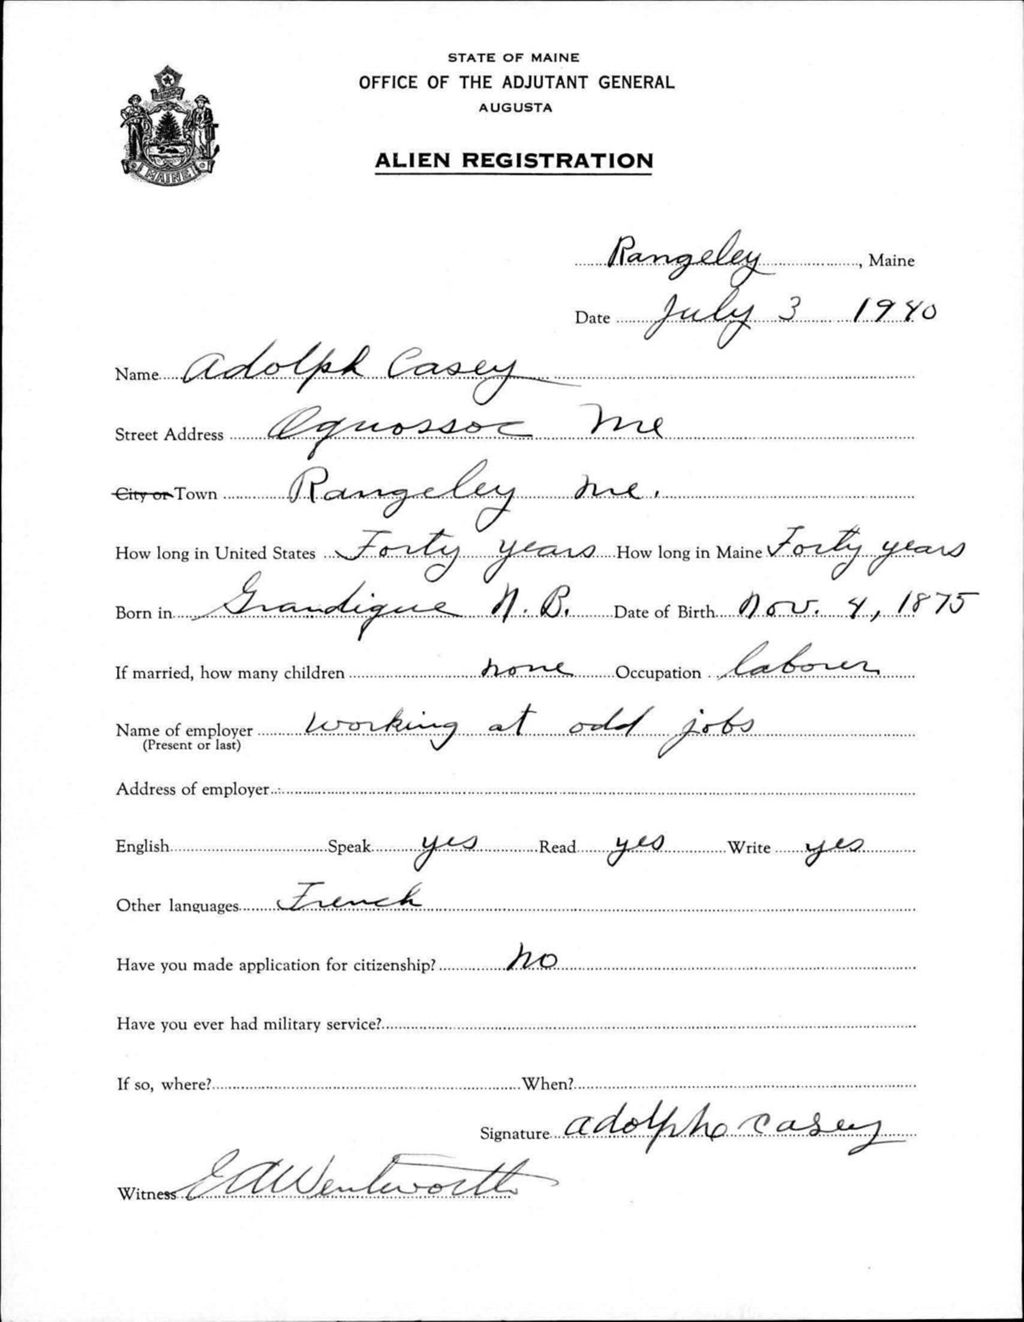 STATE OF MAINE
OFFICE OF THE ADJUTANT GENERAL
AUGUSTA
ALIEN REGISTRATION
MAINE
Rangeley, Maine
Date July 3 1940
Name Adolph Casey
Street Address Oquossoc Me
City or Town Rangeley Me.
How long in United States Forty years How long in Maine Forty years
Born in Grandigue N. B. Date of Birth Nov. 4, 1875
If married, how many children none Occupation laborer
Name of employer working at odd jobs
(Present or last)
Address of employer
English Speak yes Read yes Write yes
Other languages French
Have you made application for citizenship? No
Have you ever had military service?
If so, where? When?
Signature adolphe casey
Witness E A Wentworth